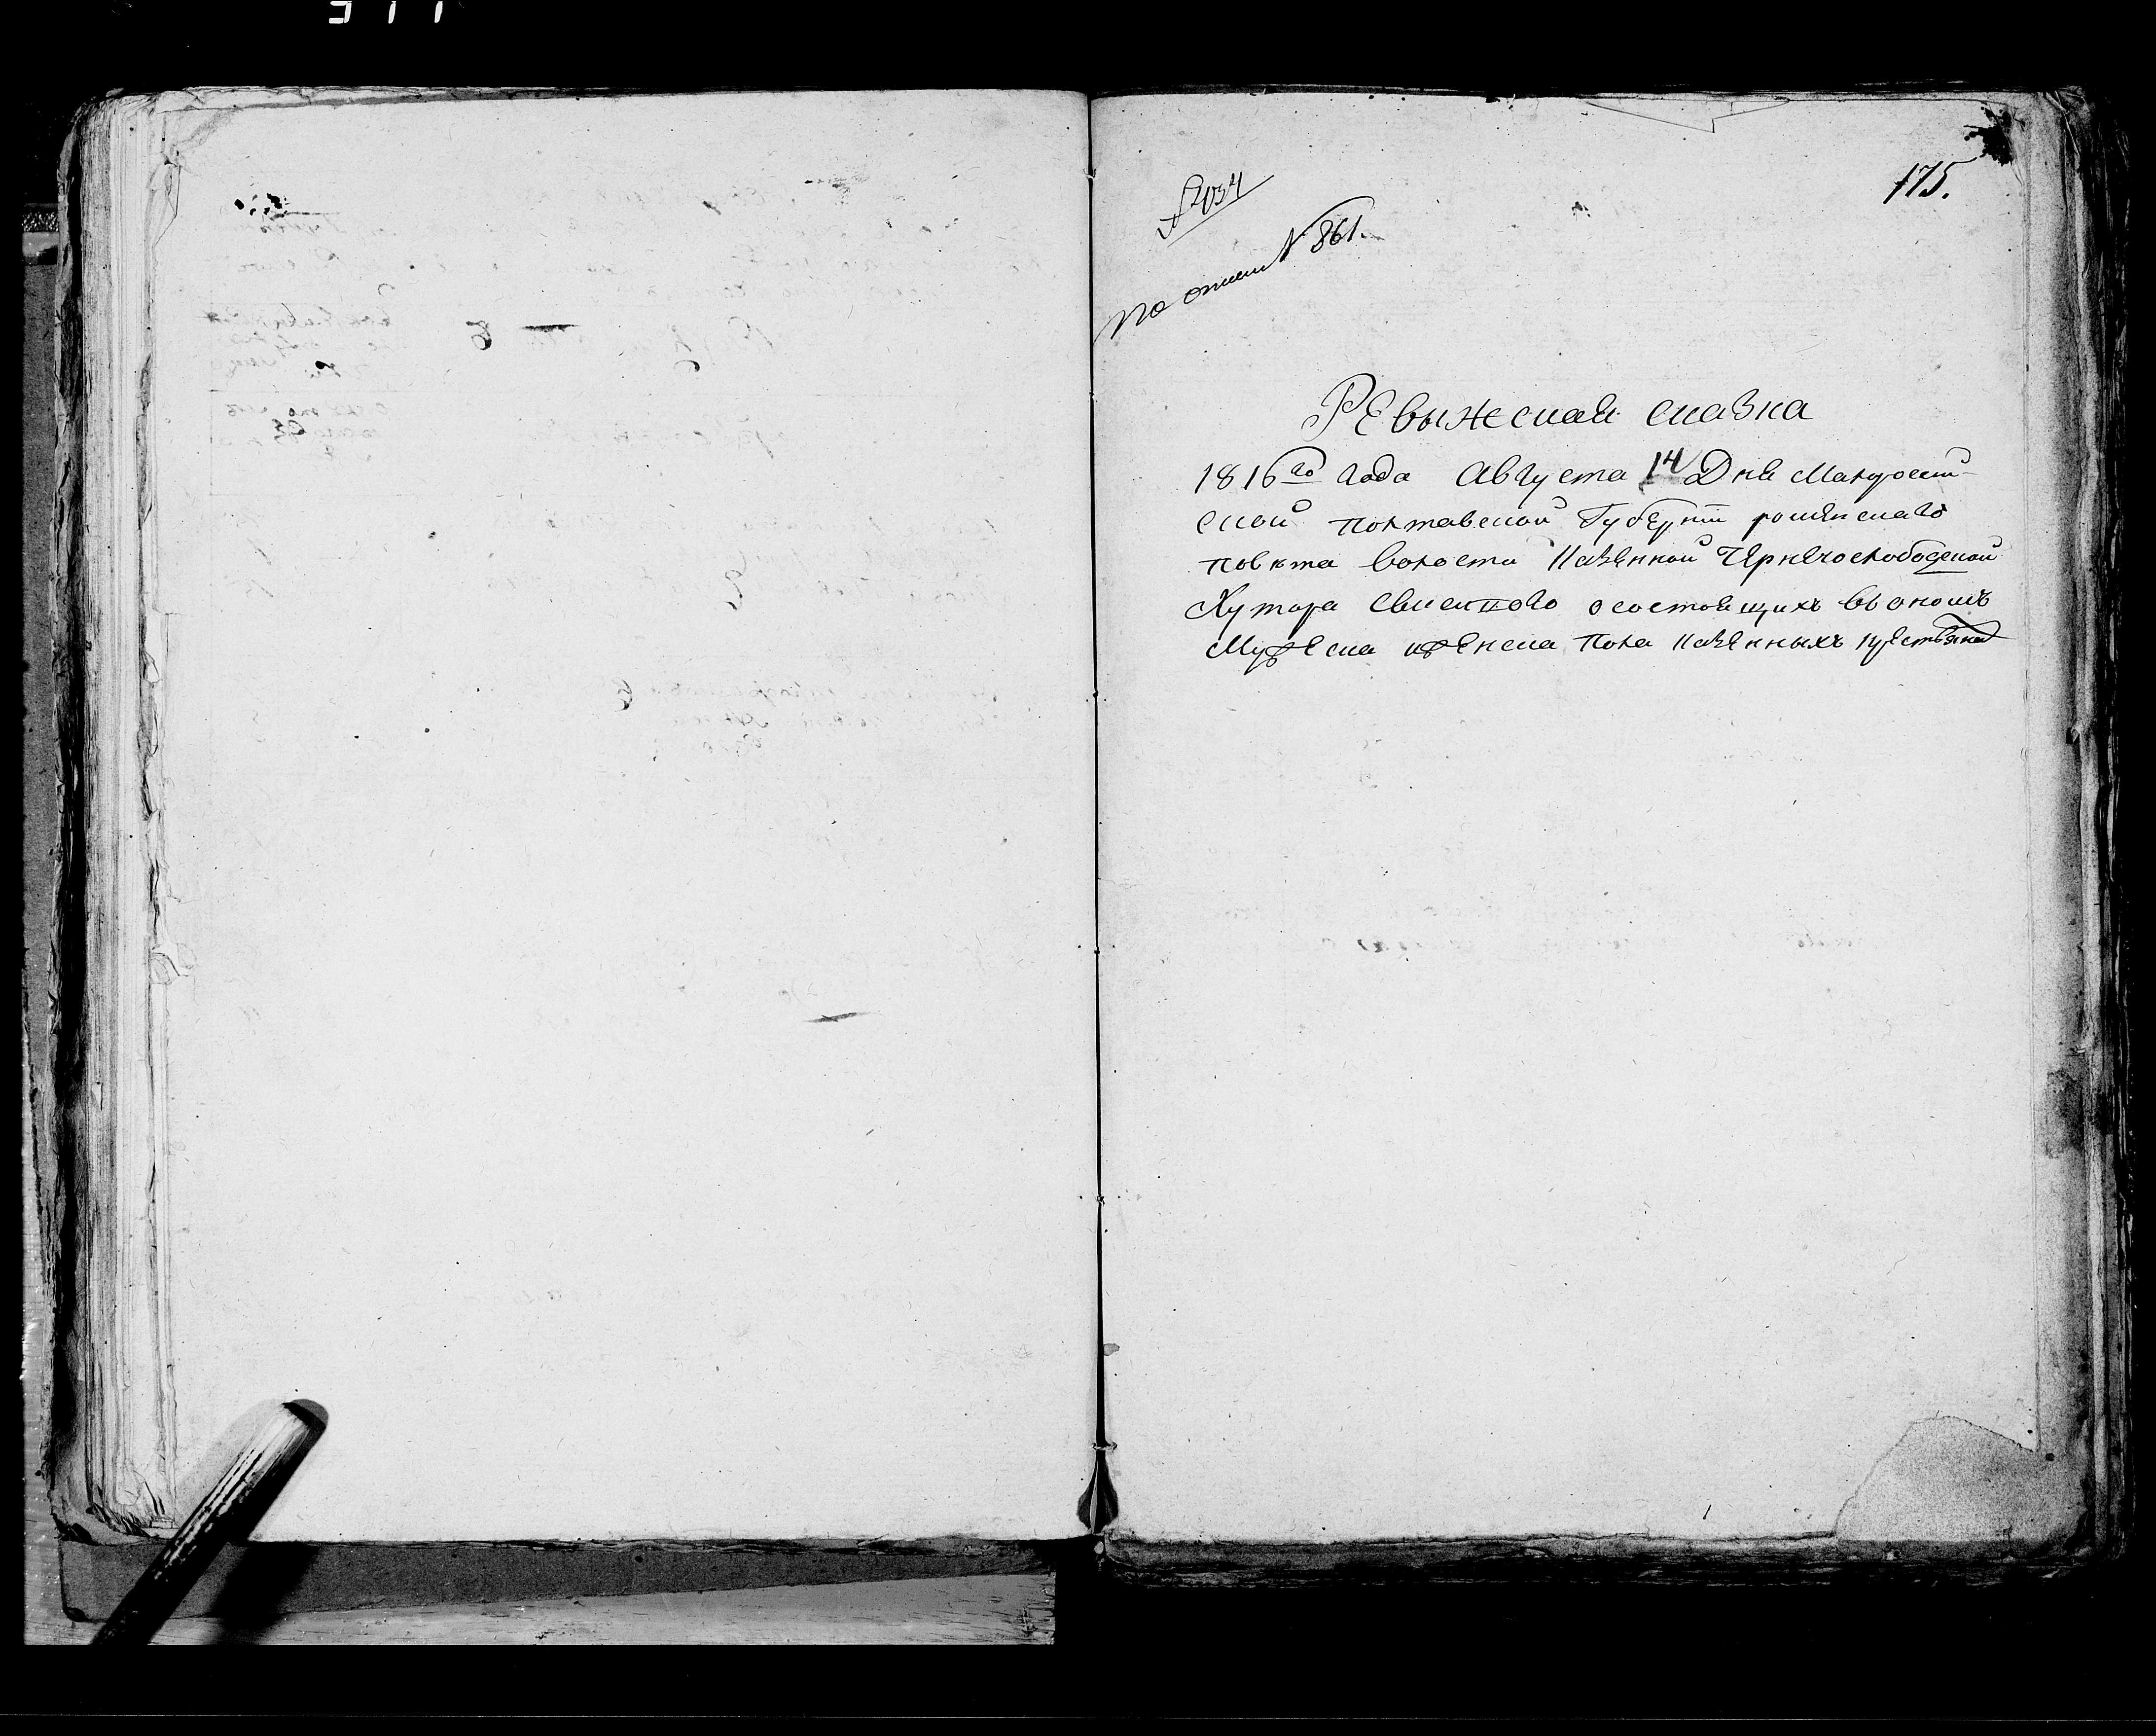 175.
№ 1034
по описи N 861.
Ревыжеская сказка
1816го года Августа 14 Дня Малоросий-
ской полтавской Губернии роменскаго
повѣта волости Казенной Чернечослободской
Хутора о состоящихъ въономъ
Мужеска иженска пола казенныхъ крестьянах